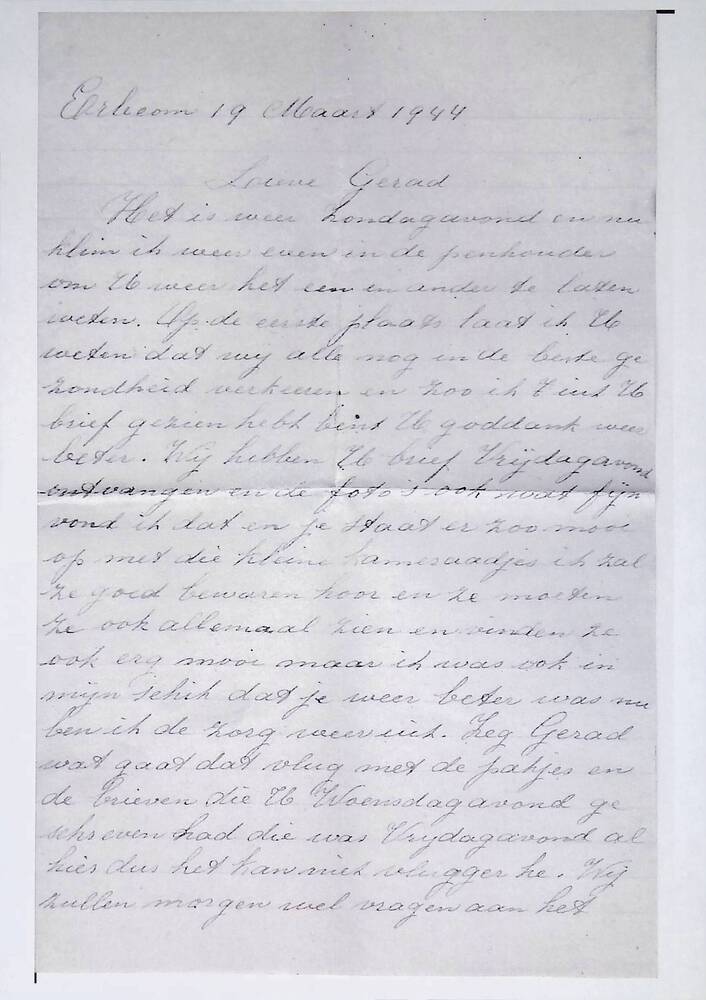 Erlecom 19 Maart 1944
Lieve Gerad
Het is weer Zondagavond en nu
klim ik weer even in de penhouder
om U weer het een en ander te laten
weten. Op de eerste plaats laat ik U
weten dat wij alle nog in de beste ge
zondheid verkeeren en zoo ik t uit U
brief gezien hebt bent U goddank weer
beter. Wij hebben U brief Vrijdagavond
ontvangen en de foto's ook wat fijn
vond ik dat en je staat er zoo mooi
op met die kleine kameraadjes ik zal
ze goed bewaren hoor en ze moeten
ze ook allemaal zien en vinden ze
ook erg mooi maar ik was ook in
mijn schik dat je weer beter was nu
ben ik de zorg weer uit. Zeg Gerad
wat gaat dat vlug met de pakjes en
de brieven die U Woensdagavond ge
schreven had die was Vrijdagavond al
hier dus het kan niet vlugger he. Wij
zullen morgen wel vragen aan het